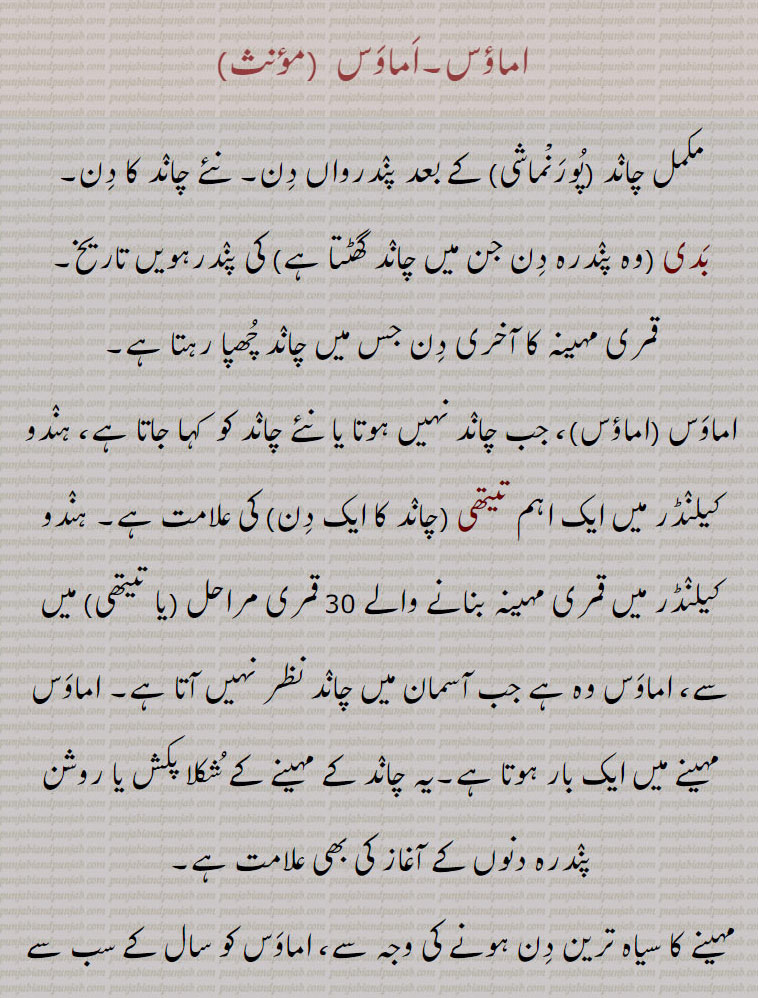 اماؤس۔اَماوَس (مؤنث)
مکمل چاند (پُورَنْماشی) کے بعد پندرواں دِن۔ نئے چاند کا دِن۔
بَدی (وہ پندرہ دِن جن میں چاند گھٹتا ہے) کی پندرہویں تاریخ۔
قمری مہینہ کا آخری دِن جس میں چاند چُھپا رہتا ہے۔
اماوَس (اماؤس)، جب چاند نہیں ہوتا یا نئے چاند کو کہا جاتا ہے، ہندو
کیلنڈر میں ایک اہم تیتھی (چاند کا ایک دِن) کی علامت ہے۔ ہندو
کیلنڈر میں قمری مہینہ بنانے والے 30 قمری مراحل (یا تیتھی) میں
سے، اماوَس وہ ہے جب آسمان میں چاند نظر نہیں آتا ہے۔ اماوَس
مہینے میں ایک بار ہوتا ہے۔یہ چاند کے مہینے کے شُکلا پکش یا روشن
پندرہ دنوں کے آغاز کی بھی علامت ہے۔
مہینے کا سیاہ ترین دِن ہونے کی وجہ سے، اماوَس کو سال کے سب سے